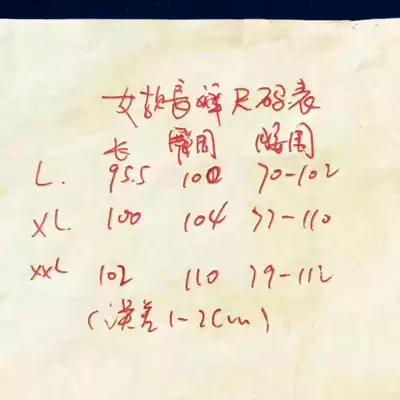 女款長裤尺码表
长 臀周 腰周
L. 95.5 70-102
XL. 100 104 77-110
XXL 102 110 79-112
(误差1-2cm)